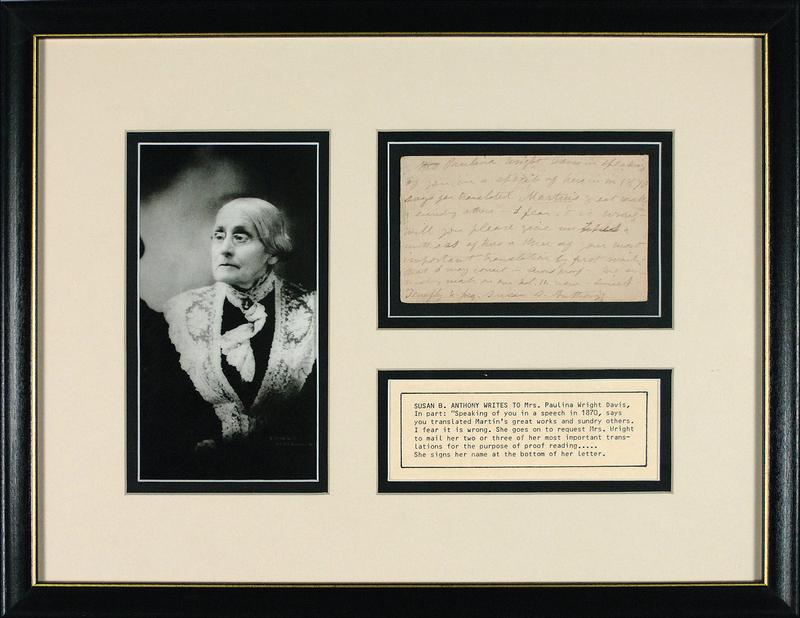 Mrs Paulina Wright Davis in speaking
of you in a speech of hers in 1870
says you translated Martin's great works
& sundry others - I fear it is wrong -
will you please give me
of two or three of your most
important translations by first mail -
that I may correct - proof -
Tenafly N. Jer. Susan B. Anthony
SUSAN B. ANTHONY WRITES TO Mrs. Paulina Wright Davis,
In part: "Speaking of you in a speech in 1870, says
you translated Martin's great works and sundry others.
I fear it is wrong. She goes on to request Mrs. Wright
to mail her two or three of her most important trans-
lations for the purpose of proof reading.....
She signs her name at the bottom of her letter.